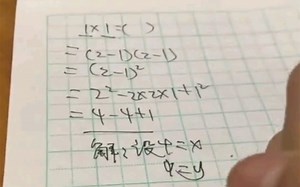 1×1=( )
=(2-1)(2-1)
=(2-1)²
=2²-2×2×1+1²
=4-4+1
解:设4=x
4=y